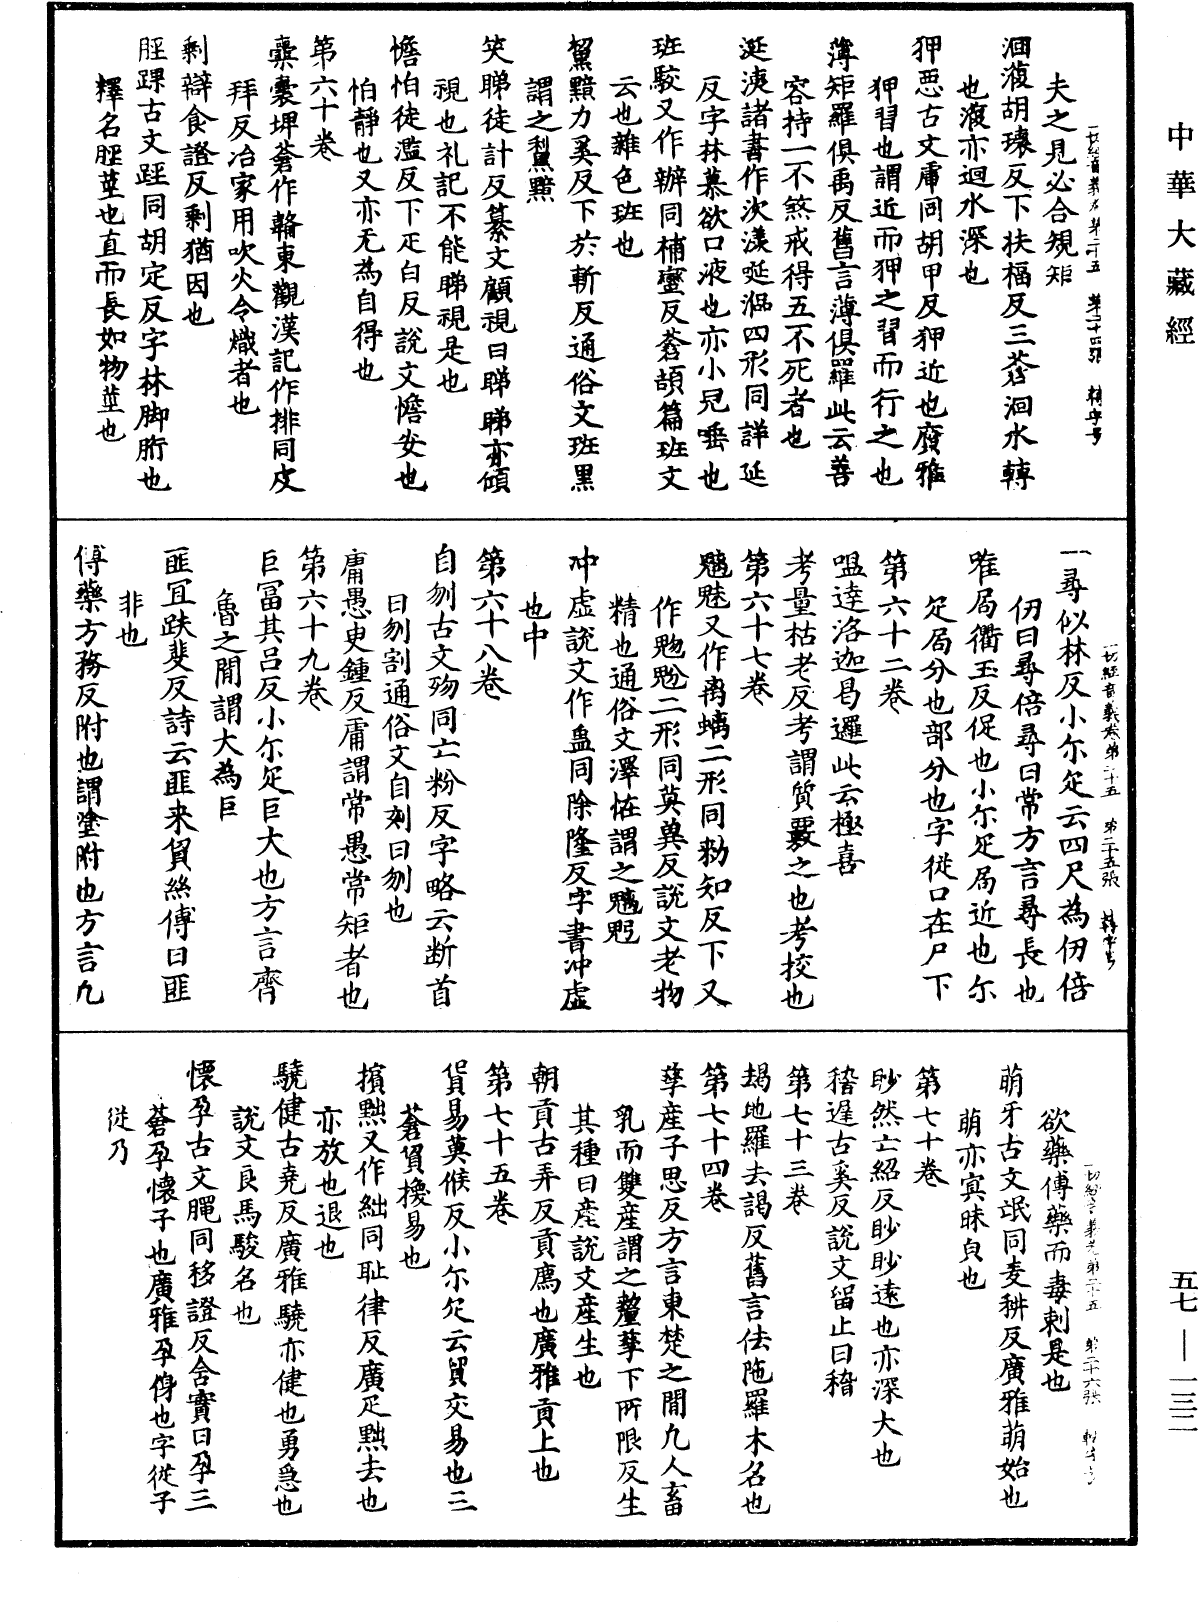 中華大藏經
一切經音義卷第二十五 第二十四張 轉字号
夫之見必合規矩
洄澓胡瓌反下扶福反三蒼洄水轉
也澓亦迴水深也
狎惡古文庘同胡甲反狎近也廣雅
狎習也謂近而狎之習而行之也
薄矩羅俱禹反舊言薄俱羅此云善
容持一不煞戒得五不死者也
涎洟諸書作次漾唌㳄四形同詳延
反字林慕欲口液也亦小兒唾也
班駮又作辦同補蠻反蒼頡篇班文
云也雜色班也
黧黯力奚反下於斬反通俗文班黑
謂之黧黯
笑睇徒計反纂文顧視曰睇睇亦傾
視也礼記不能睇視是也
憺怕徒濫反下疋白反說文憺安也
怕靜也又亦无為自得也
第六十卷
橐囊埤蒼作韛東觀漢記作排同皮
拜反冶家用吹火令熾者也
剩辯食證反剩猶因也
脛踝古文踁同胡定反字林脚胻也
釋名脛莖也直而長如物莖也
一切經音義卷第二十五 第二十五張 轉字号
一尋似林反小尒疋云四尺為仞倍
仞曰尋倍尋曰常方言尋長也
唯局衢玉反促也小尒疋局近也尒
疋局分也部分也字從口在尸下
第六十二卷
嗢達洛迦曷邏此云極喜
考量枯老反考謂質覈之也考挍也
第六十七卷
魑魅又作离螭二形同勑知反下又
作魅鬽二形同莫兾反說文老物
精也通俗文澤恠謂之魑魅
冲虛說文作盅同除隆反字書冲虛
也中
第六十八卷
自刎古文歾同亡粉反字略云断首
曰刎割通俗文自刻曰刎也
庸愚臾鍾反庸謂常愚常矩者也
第六十九卷
巨冨其呂反小尒疋巨大也方言齊
魯之閒謂大為巨
匪宜趺斐反詩云匪来貿絲傳曰匪
非也
傅藥方務反附也謂塗附也方言凡
一切經音義卷第二十五 第二十六張 轉字号
欲藥傅藥而毒刺是也
萌牙古文氓同麦耕反廣雅萌始也
萌亦冥昧皃也
第七十卷
眇然亡紹反眇眇遠也亦深大也
稽遲古奚反說文留止曰稽
第七十三卷
朅地羅去謁反舊言佉陁羅木名也
第七十四卷
孳産子思反方言東楚之閒凡人畜
乳而雙産謂之釐孳下所限反生
其種曰産說文産生也
朝貢古弄反貢薦也廣雅貢上也
第七十五卷
貿易莫候反小尒疋云貿交易也三
蒼貿換易也
擯黜又作絀同耻律反廣疋黜去也
亦放也退也
驍健古堯反廣雅驍亦健也勇急也
說文良馬駿名也
懷孕古文䐢同移證反含實曰孕三
蒼孕懷子也廣雅孕㑗也字從子
從乃
五七—一三二